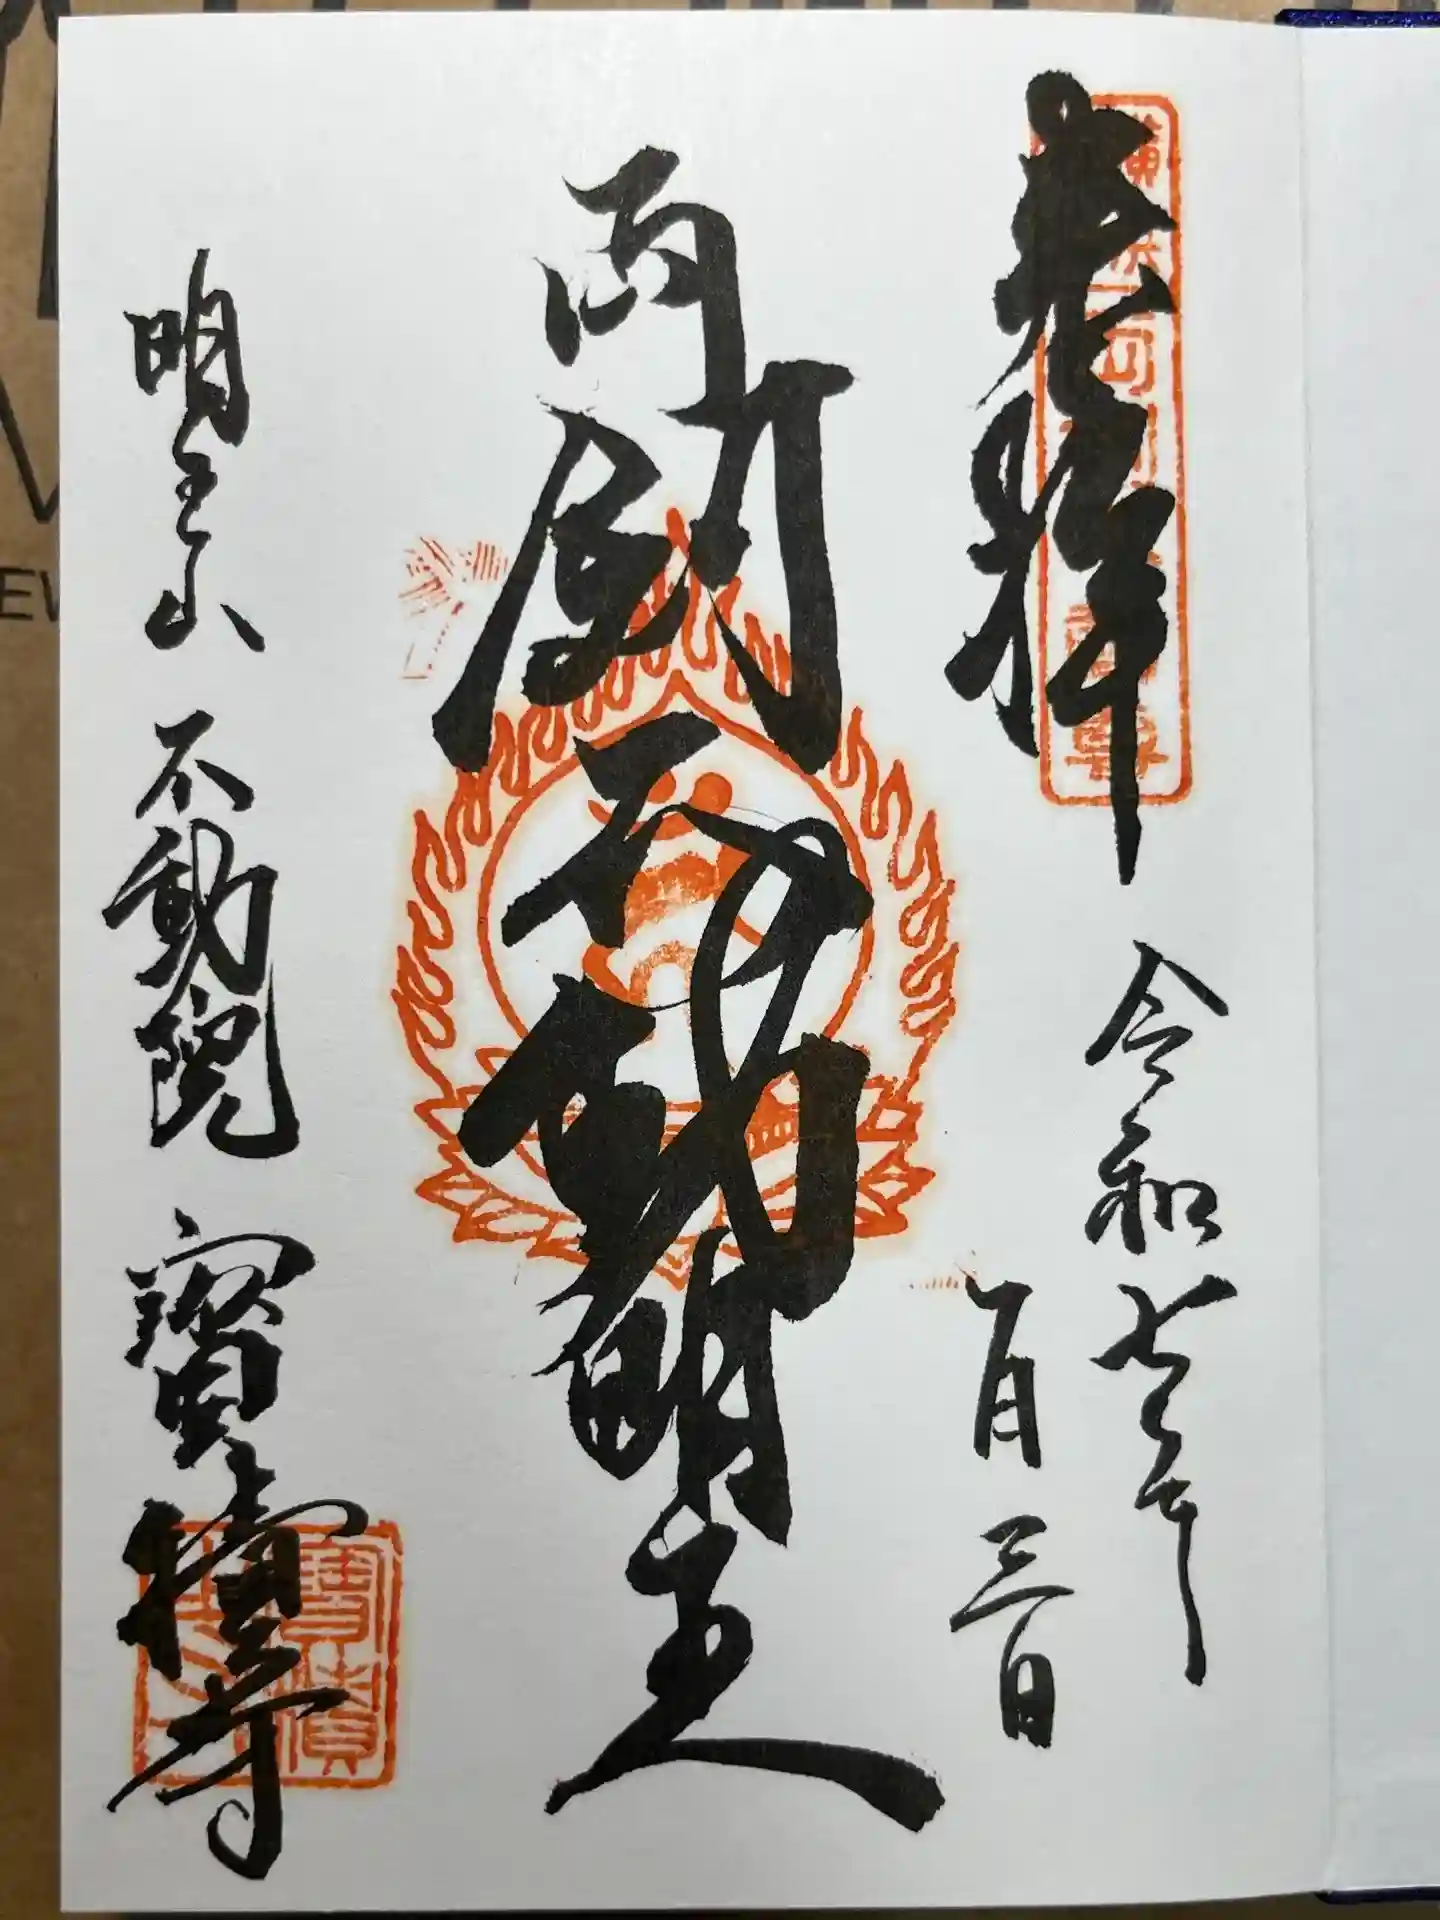 奉拝
令和七年
一月三日
不動明王
明王山 不動院 寶積寺
寶積